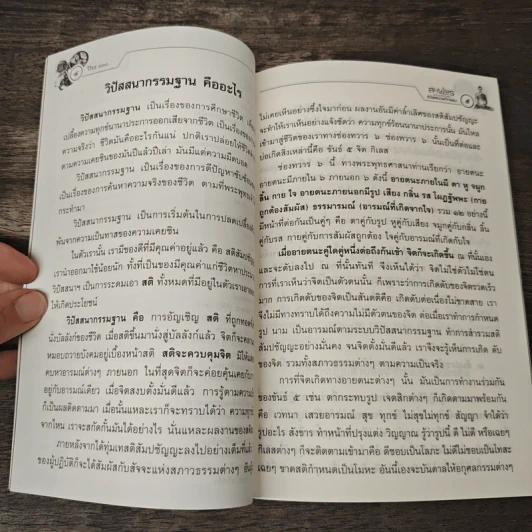 วิปัสสนากรรมฐาน คืออะไร
วิปัสสนากรรมฐาน เป็นเรื่องของการศึกษาชีวิต
เปลื้องความทุกข์นานาประการออกเสียจากชีวิต เป็นเรื่องของ
ความจริงว่า ชีวิตมันคืออะไรกันแน่ ปกติเราปล่อยให้ชีวิต
ตามความเคยชินของมันปีแล้วปีเล่า มันมีแต่ความมืดบอด
วิปัสสนากรรมฐาน เป็นเรื่องของการตีปัญหาซับซ้อน
เป็นเรื่องของการค้นหาความจริงของชีวิต ตามที่พระพุทธ
กระทำมา
วิปัสสนากรรมฐาน เป็นการเริ่มต้นในการปลดเปลื้อง
พ้นจากความเป็นทาสของความเคยชิน
ในตัวเรานั้น เรามีของดีที่มีคุณค่าอยู่แล้ว คือ สติสัมป
เรานำออกมาใช้น้อยนัก ทั้งที่เป็นของมีคุณค่าแก่ชีวิตหาประ
วิปัสสนาฯ เป็นการระดมเอา สติ ทั้งหมดที่มีอยู่ในตัวเราเอา
ให้เกิดประโยชน์
วิปัสสนากรรมฐาน คือ การอัญเชิญ สติ ที่ถูกทอด
นั่งบัลลังก์ของชีวิต เมื่อสติขึ้นมานั่งสู่บัลลังก์แล้ว จิตก็จะคลาน
หมอบถวายบังคมอยู่เบื้องหน้าสติ สติจะควบคุมจิต มิให้
คบหาอารมณ์ต่างๆ ภายนอก ในที่สุดจิตก็จะค่อยคุ้นเคยกับ
อยู่กับอารมณ์เดียว เมื่อจิตสงบตั้งมั่นดีแล้ว การรู้ตามความ
ก็เป็นผลติดตามมา เมื่อนั้นแหละเราก็จะทราบได้ว่า ความทุกข์
จากไหน เราจะสกัดกั้นมันได้อย่างไร นั่นแหละผลงานของ
ภายหลังจากได้ทุ่มเทสติสัมปชัญญะลงไปอย่างเต็มที่แล้ว
ของผู้ปฏิบัติก็จะได้สัมผัสกับสัจจะแห่งสภาวธรรมต่างๆ อัน
ไม่เคยเห็นอย่างซึ้งใจมาก่อน ผลงานอันมีค่าล้ำเลิศของสติสัมปชัญญะ
จะทำให้เราเห็นอย่างแจ้งชัดว่า ความทุกข์ร้อนนานาประการนั้น มันไหล
เข้ามาสู่ชีวิตของเราทางช่องทวาร ๖ ช่องทวาร ๖ นั้นเป็นที่ต่อและ
บ่อเกิดสิ่งเหล่านี้คือ ขันธ์ ๕ จิต กิเลส
ช่องทวาร ๖ นี้ ทางพระพุทธศาสนาท่านเรียกว่า อายตนะ
อายตนะมีภายใน ๖ ภายนอก ๖ ดังนี้ อายตนะภายในมี ตา หู จมูก
ลิ้น กาย ใจ อายตนะภายนอกมีรูป เสียง กลิ่น รส โผฏฐัพพะ (กาย
ถูกต้องสัมผัส) ธรรมารมณ์ (อารมณ์ที่เกิดจากใจ) รวม ๑๒ อย่างนี้
มีหน้าที่ต่อกันเป็นคู่ๆ คือ ตาคู่กับรูป หูคู่กับเสียง จมูกคู่กับกลิ่น ลิ้น
คู่กับรส กายคู่กับการสัมผัสถูกต้อง ใจคู่กับอารมณ์ที่เกิดกับใจ
เมื่ออายตนะคู่ใดคู่หนึ่งต่อถึงกันเข้า จิตก็จะเกิดขึ้น ณ ที่นั่นเอง
และจะดับลงไป ณ ที่นั้นทันที จึงเห็นได้ว่า จิตไม่ใช่ตัวไม่ใช่ตน
การที่เราเห็นว่าจิตเป็นตัวตนนั้น ก็เพราะว่าการเกิดดับของจิตรวดเร็ว
มาก การเกิดดับของจิตเป็นสันตติคือ เกิดดับต่อเนื่องไม่ขาดสาย เรา
จึงไม่มีทางทราบได้ถึงความไม่มีตัวตนของจิต ต่อเมื่อเราทำการกำหนด
รูป นาม เป็นอารมณ์ตามระบบวิปัสสนากรรมฐาน ทำการสำรวมสติ
สัมปชัญญะอย่างมั่นคง จนจิตตั้งมั่นดีแล้ว เราจึงจะรู้เห็นการเกิด ดับ
ของจิต รวมทั้งสภาวธรรมต่างๆ ตามความเป็นจริง
การที่จิตเกิดทางอายตนะต่างๆ นั้น มันเป็นการทำงานร่วมกัน
ของขันธ์ ๕ เช่น ตากระทบรูป เจตสิกต่างๆ ก็เกิดตามมาพร้อมกัน
คือ เวทนา เสวยอารมณ์ สุข ทุกข์ ไม่สุขไม่ทุกข์ สัญญา จำได้ว่า
รูปอะไร สังขาร ทำหน้าที่ปรุงแต่ง วิญญาณ รู้ว่ารูปนี้ ดี ไม่ดี หรือเฉยๆ
กิเลสต่างๆ ก็จะติดตามเข้ามาคือ ดีชอบเป็นโลภะ ไม่ดีไม่ชอบเป็นโทสะ
เฉยๆ ขาดสติกำหนดเป็นโมหะ อันนี้เองจะบันดาลให้อกุศลกรรมต่างๆ